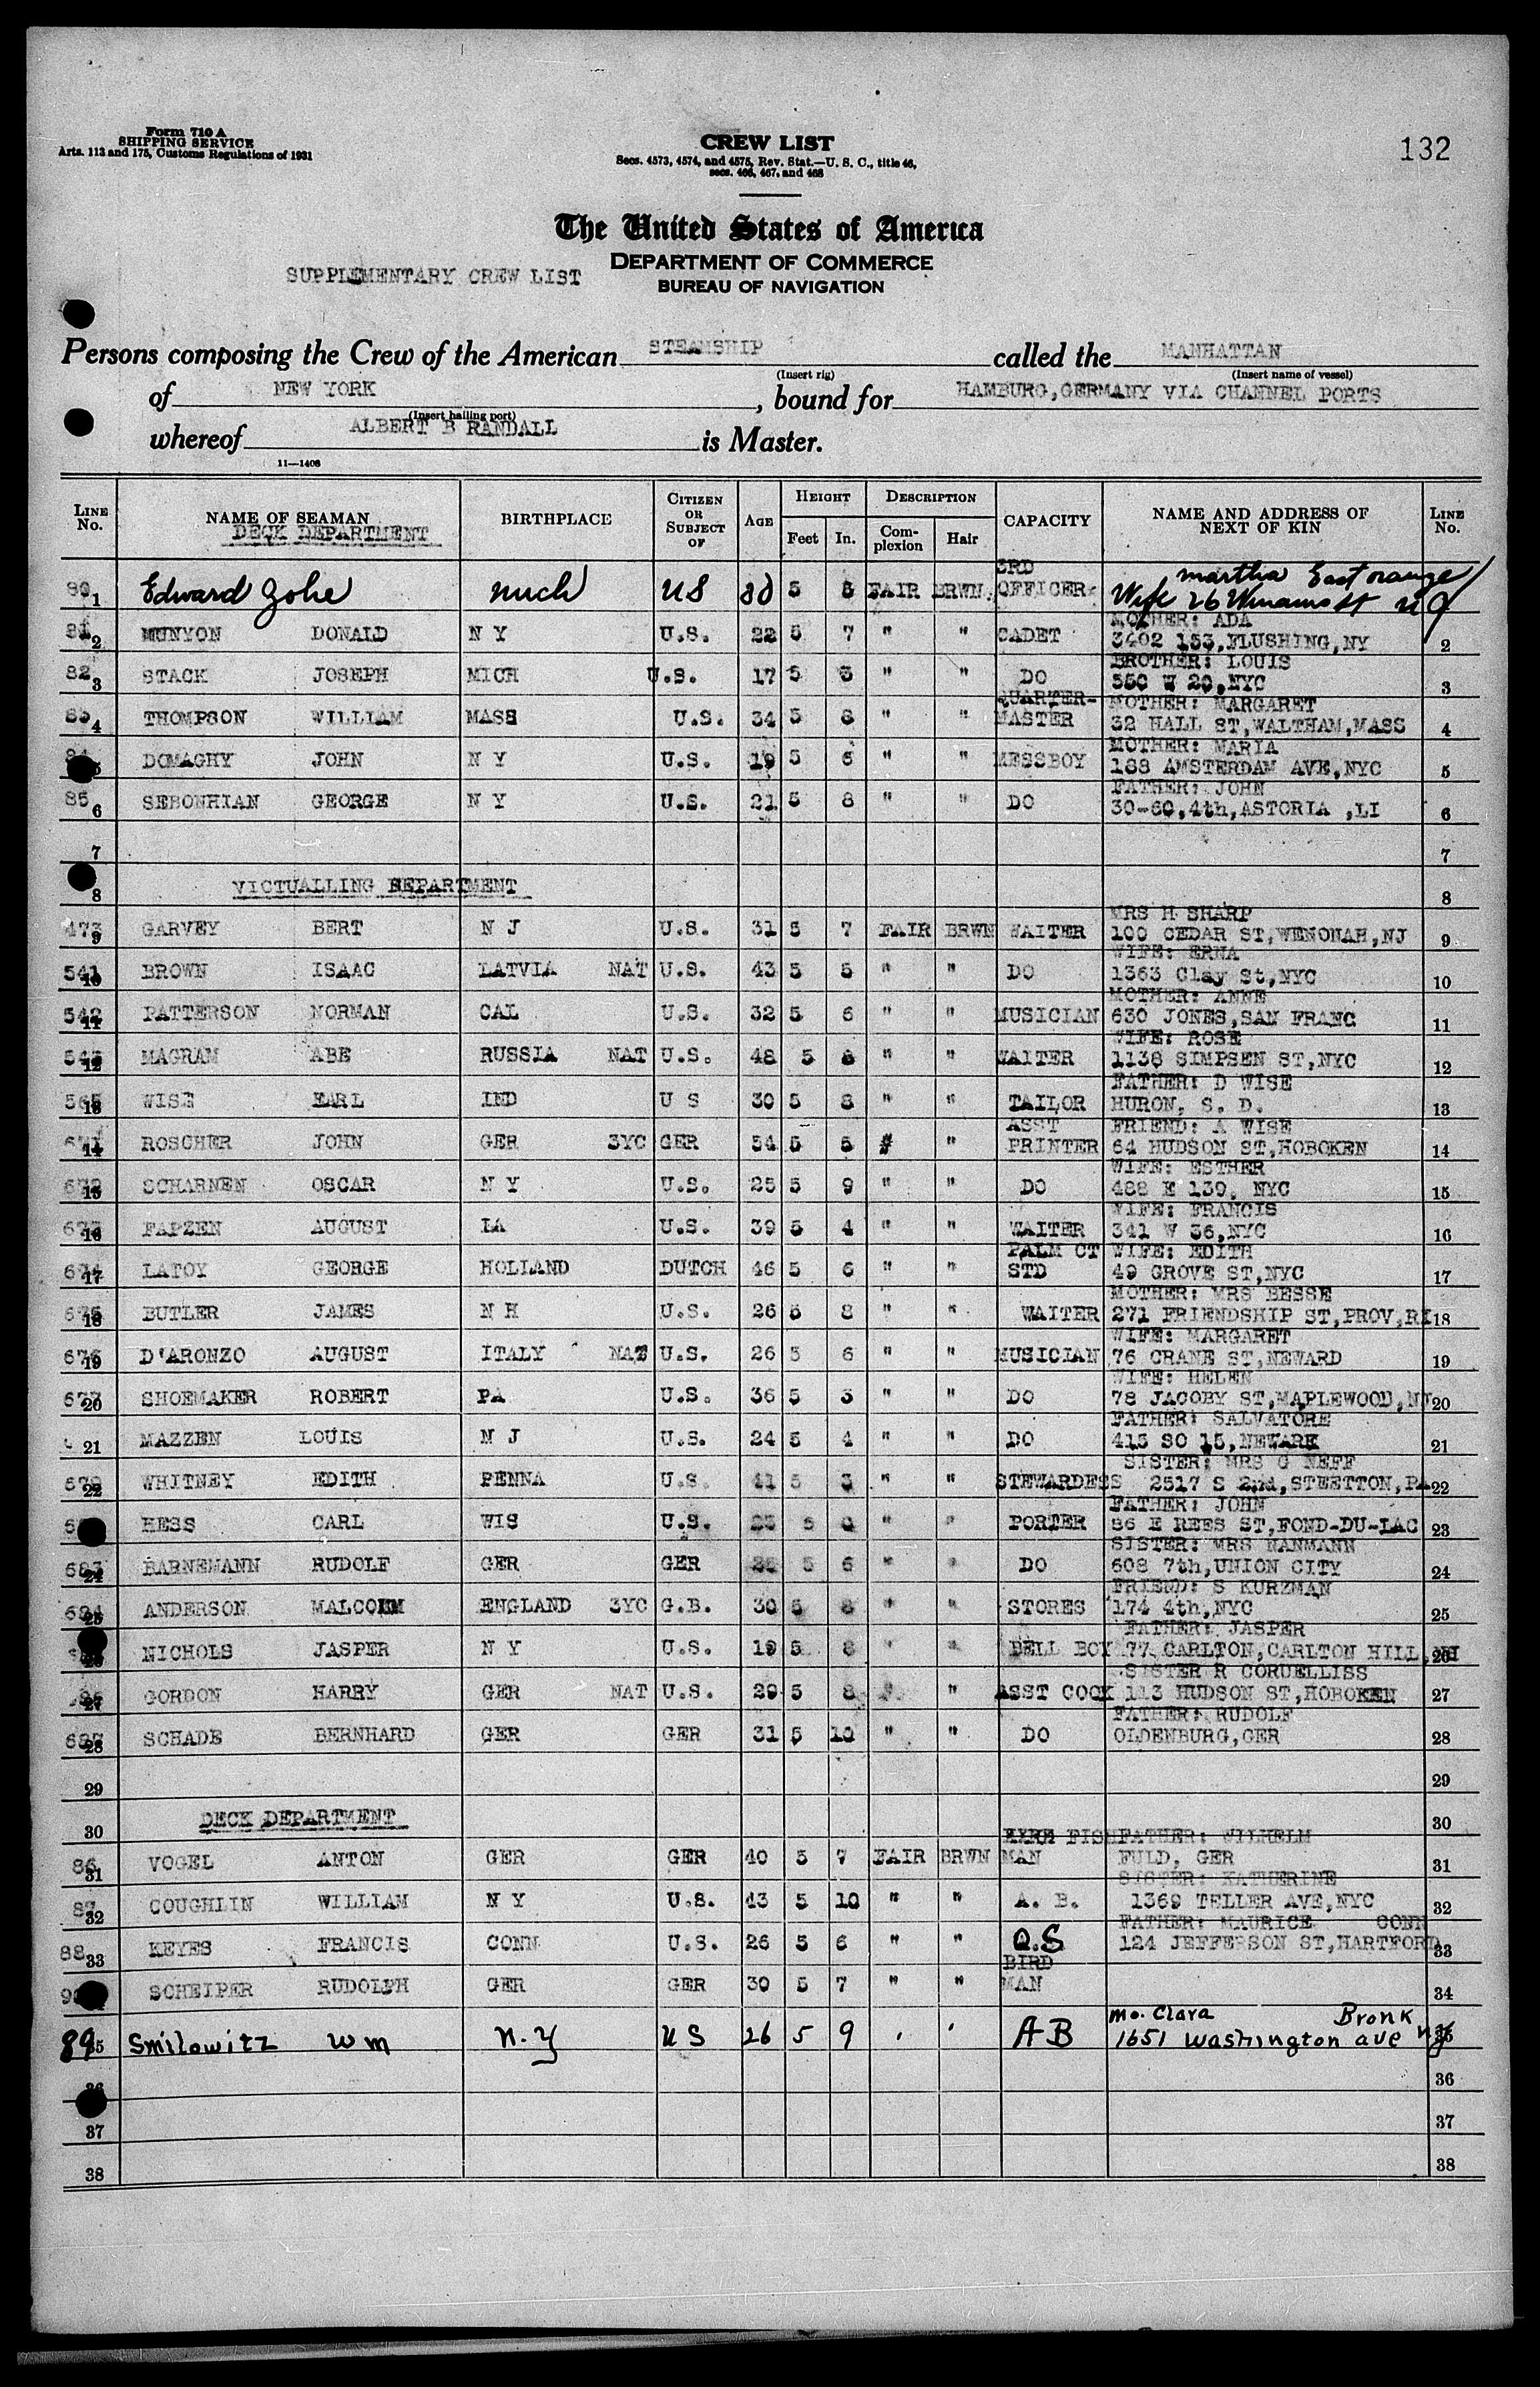 Form 710 A
SHIPPING SERVICE
Arts. 113 and 175, Customs Regulations of 1931
CREW LIST
Secs. 4573, 4574, and 4575, Rev. Stat.—U. S. C., title 46,
secs. 466, 467, and 468
132
The United States of America
DEPARTMENT OF COMMERCE
BUREAU OF NAVIGATION
SUPPLEMENTARY CREW LIST
Persons composing the Crew of the American STEAMSHIP called the MANHATTAN
(Insert rig) (Insert name of vessel)
of NEW YORK, bound for HAMBURG,GERMANY VIA CHANNEL PORTS
(Insert hailing port)
whereof ALBERT B RANDALL is Master.
11—1406
LINE No. NAME OF SEAMAN BIRTHPLACE CITIZEN OR SUBJECT OF AGE HEIGHT Feet In. DESCRIPTION Complexion Hair CAPACITY NAME AND ADDRESS OF NEXT OF KIN LINE No.
DECK DEPARTMENT
1 Edward US 5 8 FAIR BRWN 3RD OFFICER Wife martha 26 East orange NJ
81 2 MUNYON DONALD N Y U.S. 22 5 7 " " CADET MOTHER: ADA 3402 153,FLUSHING,NY 2
82 3 STACK JOSEPH MICH U.S. 17 5 " " DO BROTHER: LOUIS 550 W 20,NYC 3
4 THOMPSON WILLIAM MASS U.S. 34 5 8 " " QUARTER-MASTER MOTHER: MARGARET 32 HALL ST,WALTHAM,MASS 4
DOMAGHY JOHN N Y U.S. 19 5 6 " " MESSBOY MOTHER: MARIA 188 AMSTERDAM AVE,NYC 5
85 6 SEBONHIAN GEORGE N Y U.S. 21 5 8 " " DO FATHER: JOHN 30-60,4th,ASTORIA ,LI 6
7 7
8 VICTUALLING DEPARTMENT 8
473 9 GARVEY BERT N J U.S. 31 5 7 FAIR BRWN WAITER MRS H SHARP 100 CEDAR ST,WENONAH,NJ 9
541 10 BROWN ISAAC LATVIA NAT U.S. 43 5 5 " " DO WIFE: ERNA 1363 Clay St,NYC 10
542 11 PATTERSON NORMAN CAL U.S. 32 5 6 " " MUSICIAN MOTHER: ANNE 630 JONES,SAN FRANC 11
543 12 MAGRAM ABE RUSSIA NAT U.S. 48 5 8 " " WAITER WIFE: ROSE 1138 SIMPSEN ST,NYC 12
565 13 WISE EARL IND U S 30 5 8 " " TAILOR FATHER: D WISE HURON, S. D. 13
671 14 ROSCHER JOHN GER 3YC GER 54 5 5 " ASST PRINTER FRIEND: A WISE 64 HUDSON ST,HOBOKEN 14
672 15 SCHARNEN OSCAR N Y U.S. 25 5 9 " " DO WIFE: ESTHER 488 E 139, NYC 15
673 16 FAPZEN AUGUST IA U.S. 39 5 4 " " WAITER WIFE: FRANCIS 341 W 36,NYC 16
674 17 LATOY GEORGE HOLLAND DUTCH 46 5 6 " " PALM CT STD WIFE: EDITH 49 GROVE ST,NYC 17
675 18 BUTLER JAMES N H U.S. 26 5 8 " " WAITER MOTHER: MRS BESSE 271 FRIENDSHIP ST,PROV,RI 18
676 19 D'ARONZO AUGUST ITALY NAT U.S. 26 5 6 " " MUSICIAN WIFE: MARGARET 76 CRANE ST,NEWARD 19
677 20 SHOEMAKER ROBERT PA U.S. 36 5 3 " " DO WIFE: HELEN 78 JACOBY ST,MAPLEWOOD,NJ 20
21 MAZZEN LOUIS N J U.S. 24 5 4 " " DO FATHER: SALVATORE 415 SO 15,NEWARK 21
679 22 WHITNEY EDITH PENNA U.S. 41 5 3 " " STEWARDESS SISTER: MRS G NEFF 2517 S 2nd,STEETTON,PA 22
HESS CARL WIS U.S. 5 " " PORTER FATHER: JOHN 86 E REES ST,FOND-DU-LAC 23
683 24 BARNEMANN RUDOLF GER GER 5 6 " " DO SISTER: MRS NANMANN 608 7th,UNION CITY 24
684 25 ANDERSON MALCOLM ENGLAND 3YC G.B. 30 5 8 " " STORES FRIEND: S KURZMAN 174 4th,NYC 25
NICHOLS JASPER N Y U.S. 19 5 8 " " BELL BOY FATHER: JASPER 77 CARLTON,CARLTON HILL, 26
27 GORDON HARRY GER NAT U.S. 29 5 8 " ASST COOK SISTER R CORUELLISS 113 HUDSON ST,HOBOKEN 27
28 SCHADE BERNHARD GER GER 31 5 10 " " DO FATHER: RUDOLF OLDENBURG,GER 28
29 29
30 DECK DEPARTMENT 30
86 31 VOGEL ANTON GER GER 40 5 7 FAIR BRWN FISH MAN FATHER: WILHELM FULD, GER 31
87 32 COUGHLIN WILLIAM N Y U.S. 43 5 10 " " A. B. SISTER: KATHERINE 1369 TELLER AVE,NYC 32
88 33 KEYES FRANCIS CONN U.S. 26 5 6 " " O.S FATHER: MAURICE CONN 124 JEFFERSON ST,HARTFORD 33
SCHEIPER RUDOLPH GER GER 30 5 7 " " BIRD MAN 34
89 35 Smilowitz Wm N.Y US 26 5 9 ' ' AB Mo. Clara Bronx 1651 Washington ave NY 35
36 36
37 37
38 38